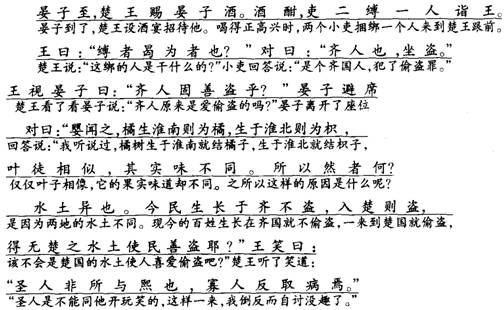 晏子至,楚王赐晏子酒。酒酣,吏二缚一人诣王。
晏子到了,楚王设酒宴招待他。喝得正高兴时,两个小吏捆绑一个人来到楚王跟前。
王曰:“缚者曷为者也?”对曰:“齐人也,坐盗。”
楚王说:“这绑的人是干什么的?”小吏回答说:“是个齐国人,犯了偷盗罪。”
王视晏子曰:“齐人固善盗乎?”晏子避席
楚王看了看晏子说:“齐人原来是爱偷盗的吗?”晏子离开了座位
对曰:“婴闻之,橘生淮南则为橘,生于淮北则为枳,
回答说:“我听说过,橘树生于淮南就结橘子,生于淮北就结枳子,
叶徒相似,其实味不同。所以然者何?
仅仅叶子相像,它的果实味道却不同。之所以这样的原因是什么呢?
水土异也。今民生长于齐不盗,入楚则盗,
是因为两地的水土不同。现今的百姓生长在齐国就不偷盗,一来到楚国就偷盗,
得无楚之水土使民善盗耶?”王笑曰:
该不会是楚国的水土使人喜爱偷盗吧?”楚王听了笑道:
“圣人非所与熙也,寡人反取病焉。”
“圣人是不能同他开玩笑的,这样一来,我倒反而自讨没趣了。”